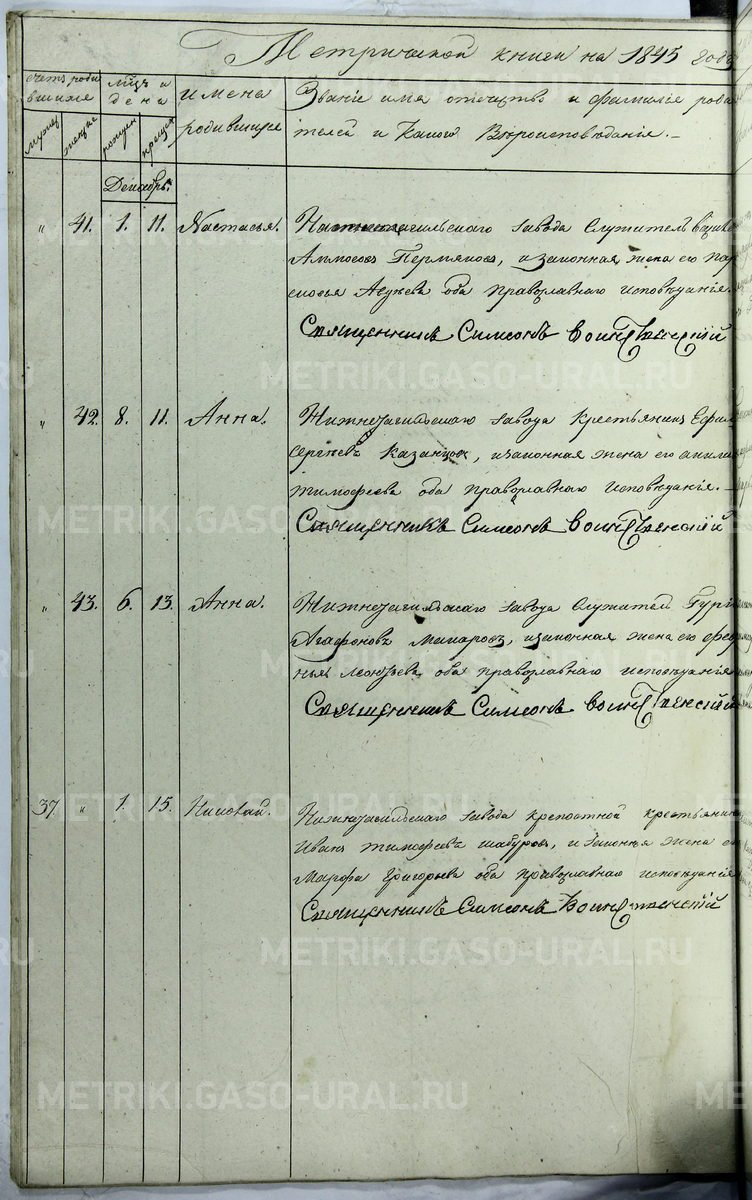 Метрической книги на 1845 годъ
счетъ роди мѣцъ и имена Званіе имя отчество и фамилія роди
вшихся дена родившихся телей и какого Вѣроисповѣданія.
мужес женскаго рожден крещен
Декабрь.
" 41. 1. 11. Настасья. Нижнетагильскаго завода Служитель
Аммосовъ Пермяковъ, и законная жена его Пар
оба православнаго исповѣданія.
Священникъ Симеонъ Воинственскій
" 42. 8. 11. Анна. Нижнетагильскаго завода Крестьянинъ Ефим
Сергѣевъ Казанцовъ, и законная жена его акили
тимофеева оба православнаго исповѣданія.
Священникъ Симеонъ Воинственскій
" 43. 6. 13. Анна. Нижнетагильскаго завода Служитель Гурі
Агафоновъ Макаровъ, и законная жена его Фев
нья Леонтьева оба православнаго исповѣданія
Священникъ Симеонъ Воинственскій
37. " 1. 15. Николай. Нижнетагильскаго завода крепостной крестьянинъ
Иванъ тимофеевъ шабуровъ, и законная жена ег
Марфа Григорьева оба православнаго исповѣданія
Священникъ Симеонъ Воинственскій
METRIKI.GASO-URAL.RU